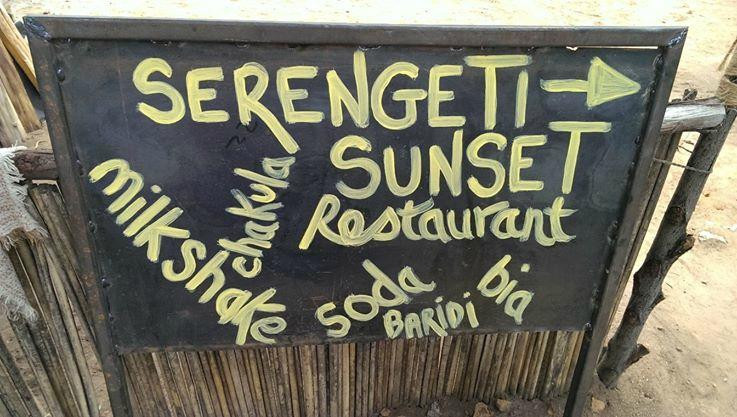 SERENGETI
SUNSET
Restaurant
chakula
milkshake
soda
BARIDI
bia